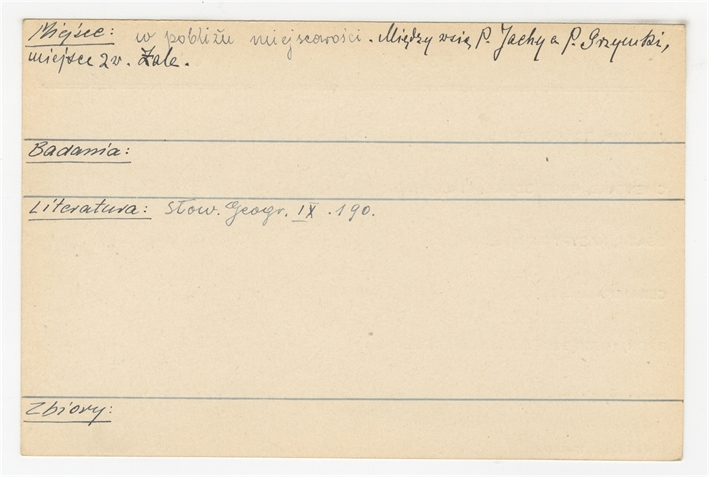 Miejsce: w pobliżu miejscowości. Między wsią P. Jachy a P. Grzymki,
miejsce zw. Żale.
Badania:
Literatura: Słow. Geogr. IX. 190.
Zbiory: